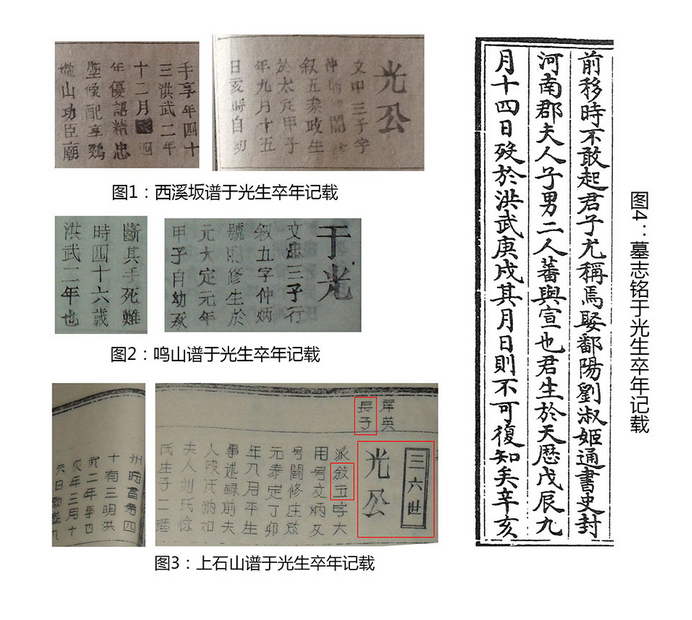 光公
文甲三子字
叙五泰政生
於太定甲子
年九月十五
日亥時自幼
手享年四十
三洪武二年
十二月
年優詔精忠
堅候配享鷄
山功臣廟
图1：西溪坂谱于光生卒年记载
于光
文忠三子行
叙五字仲炳
號則修生於
元大定元年
甲子自幼承
斷其手死難
時四十六歲
洪武二年也
图2：鸣山谱于光生卒年记载
三六世
光公
屏英
長子
派叙五字大
用号文炳又
号閣修生於
元泰定丁卯
年九月平生
事述録前夫
夫人刘氏
氏生子二
十有三明洪
武二年
戌年三月十
图3：上石山谱于光生卒年记载
前移時不敢起君子尤稱焉娶鄱陽劉淑姬通書史封
河南郡夫人子男二人蕃與宣也君生於天歷戊辰九
月十四日歿於洪武庚戌其月日則不可復知矣辛亥
图4：墓志铭于光生卒年记载